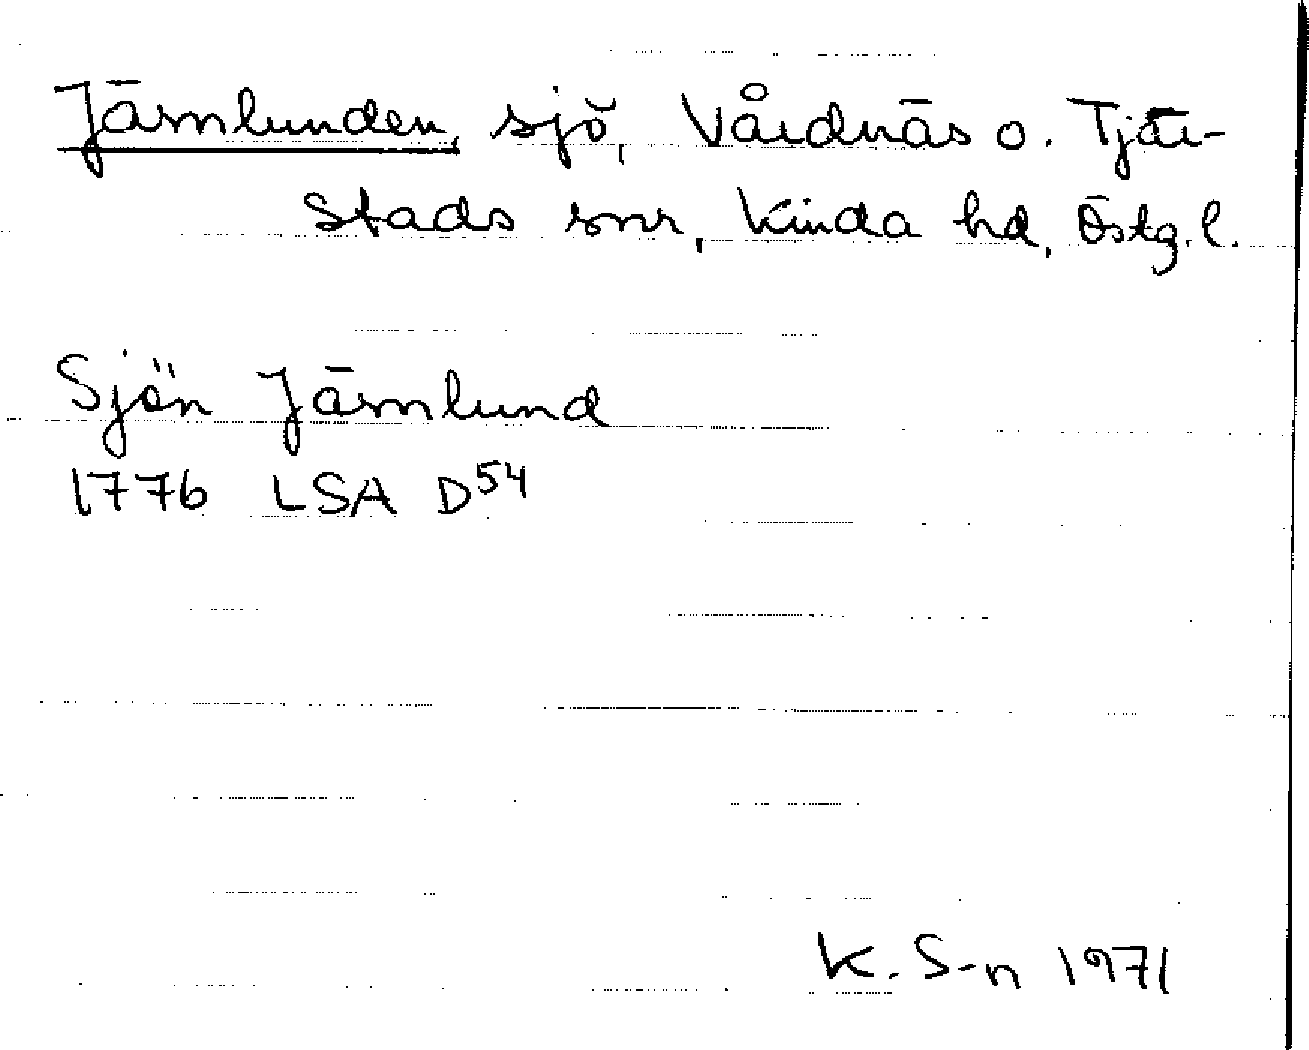 Järnlunden, sjö, Vårdnäs o. Tjär-
stads snr, Kinda hd, Östg. l.
Sjön Järnlund
1776 LSA D54
K. S-n 1971